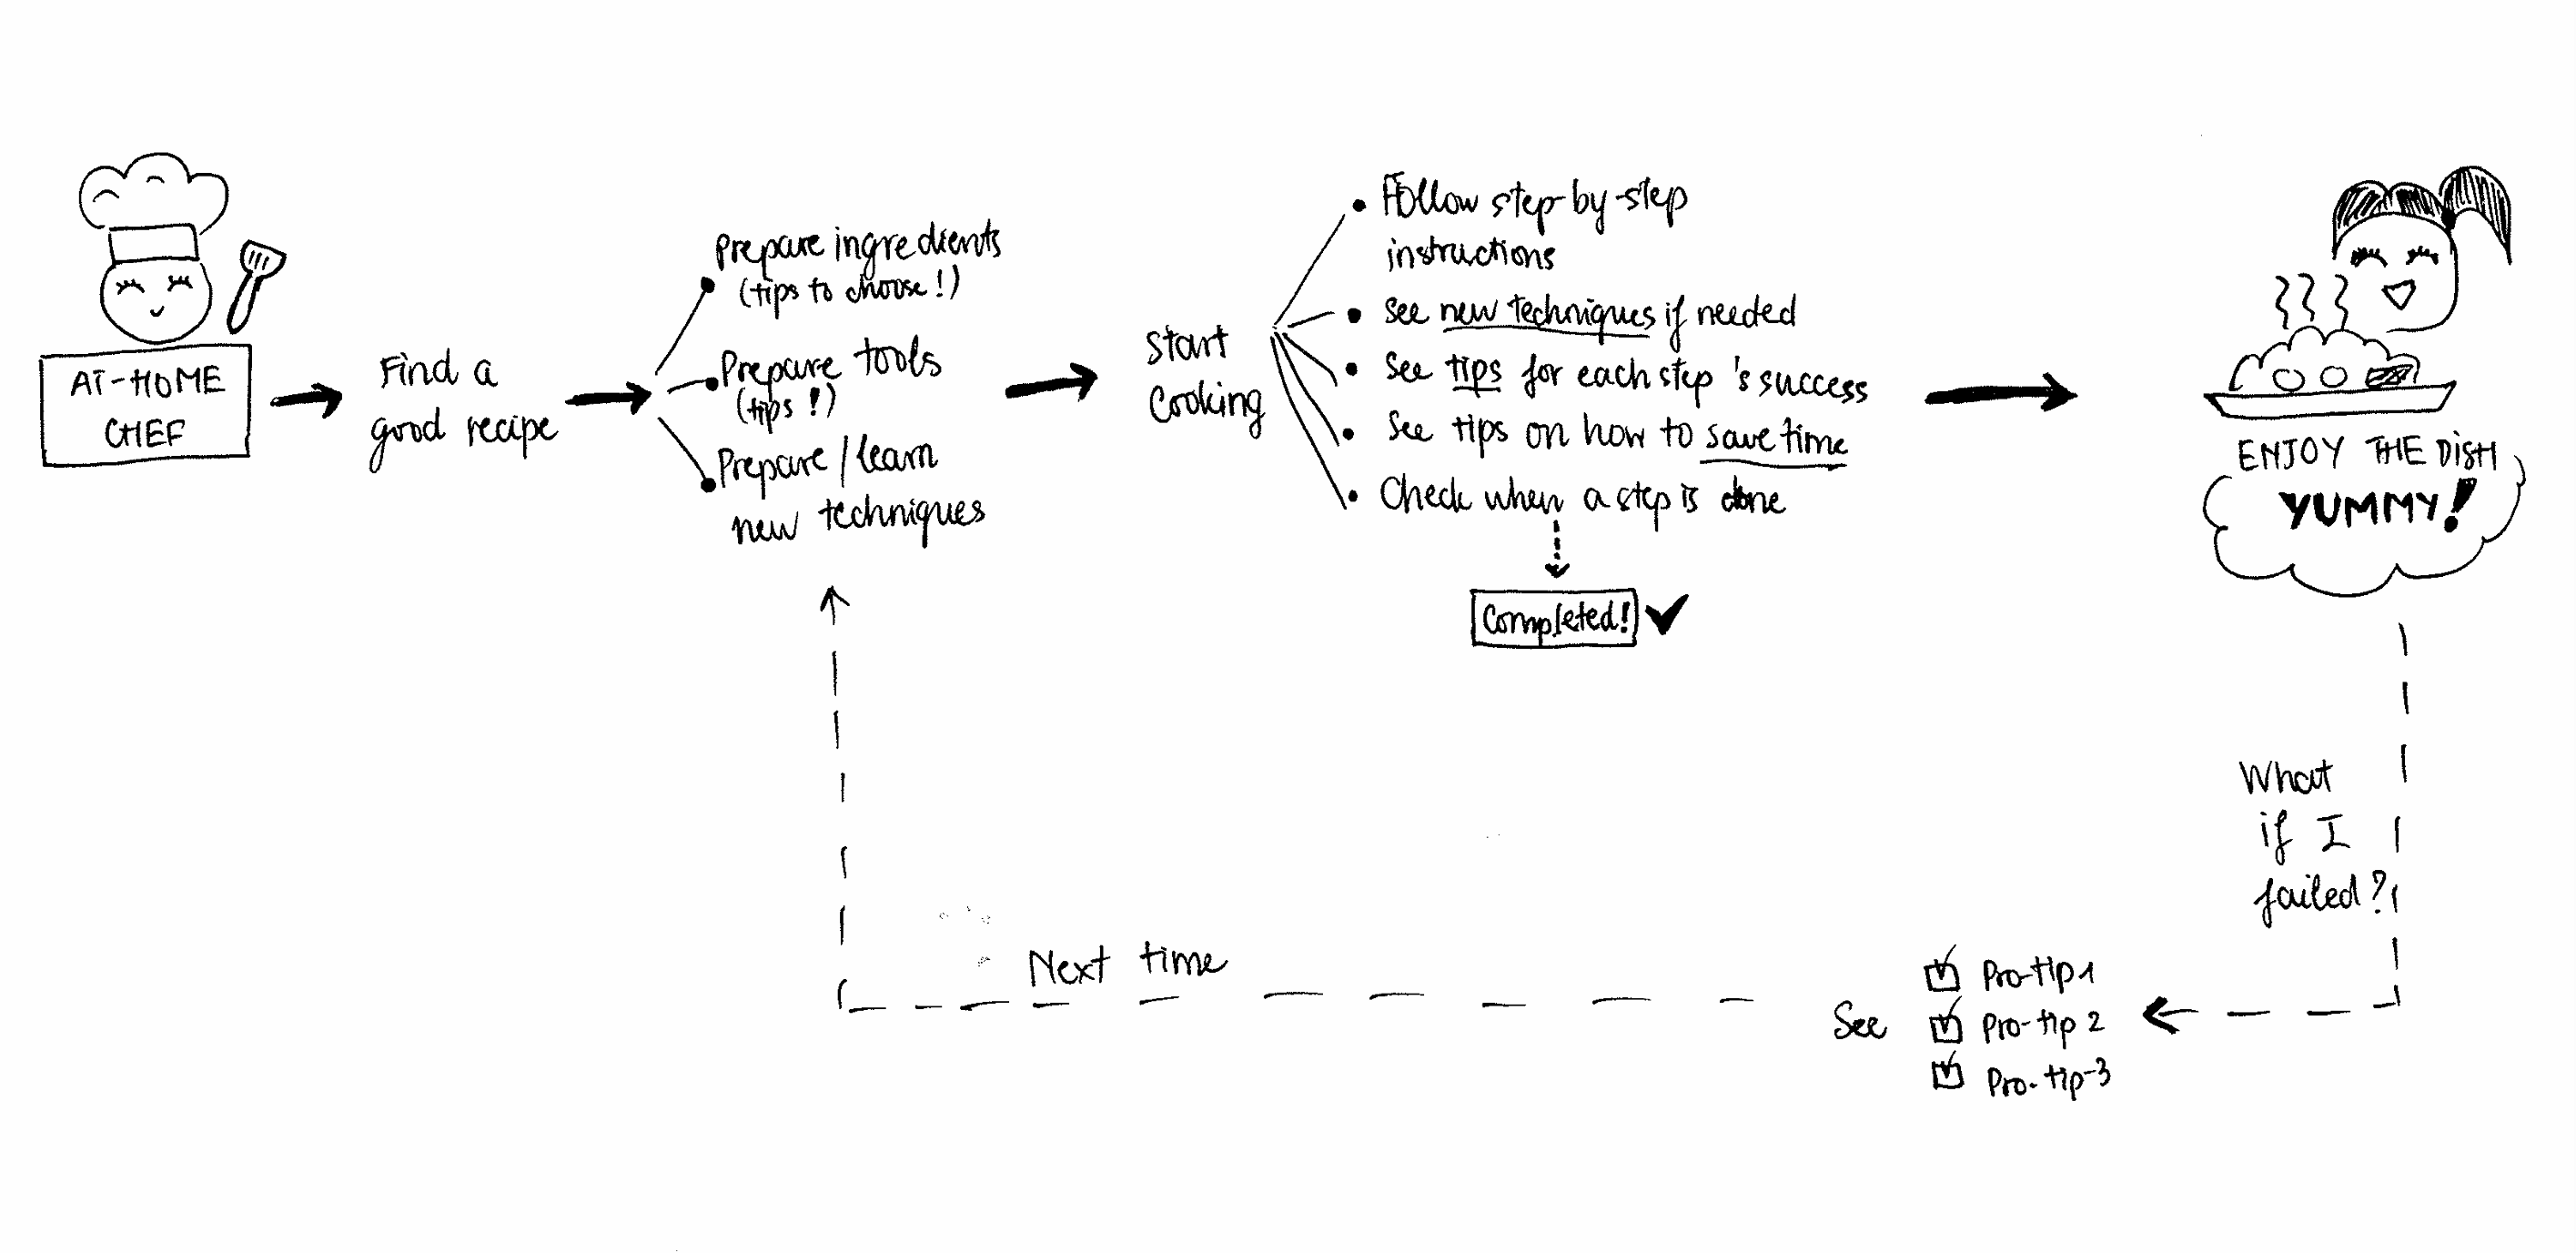 AT-HOME
CHEF
Find a
good recipe
Prepare ingredients
(tips to choose!)
Prepare tools
(tips!)
Prepare/learn
new techniques
Start
Cooking
Follow step-by-step
instructions
See new techniques if needed
See tips for each step's success
See tips on how to save time
Check when a step is done
Completed!
ENJOY THE DISH
YUMMY!
What
if I
failed?
See
Pro-tip 1
Pro-tip 2
Pro-tip-3
Next time